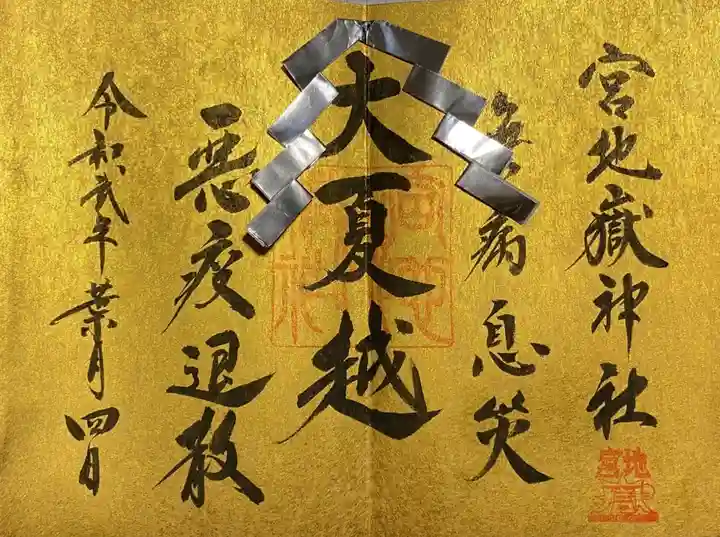 宮地嶽神社
無病息災
大夏越
悪疫退散
令和弐年葉月四日
宮地嶽